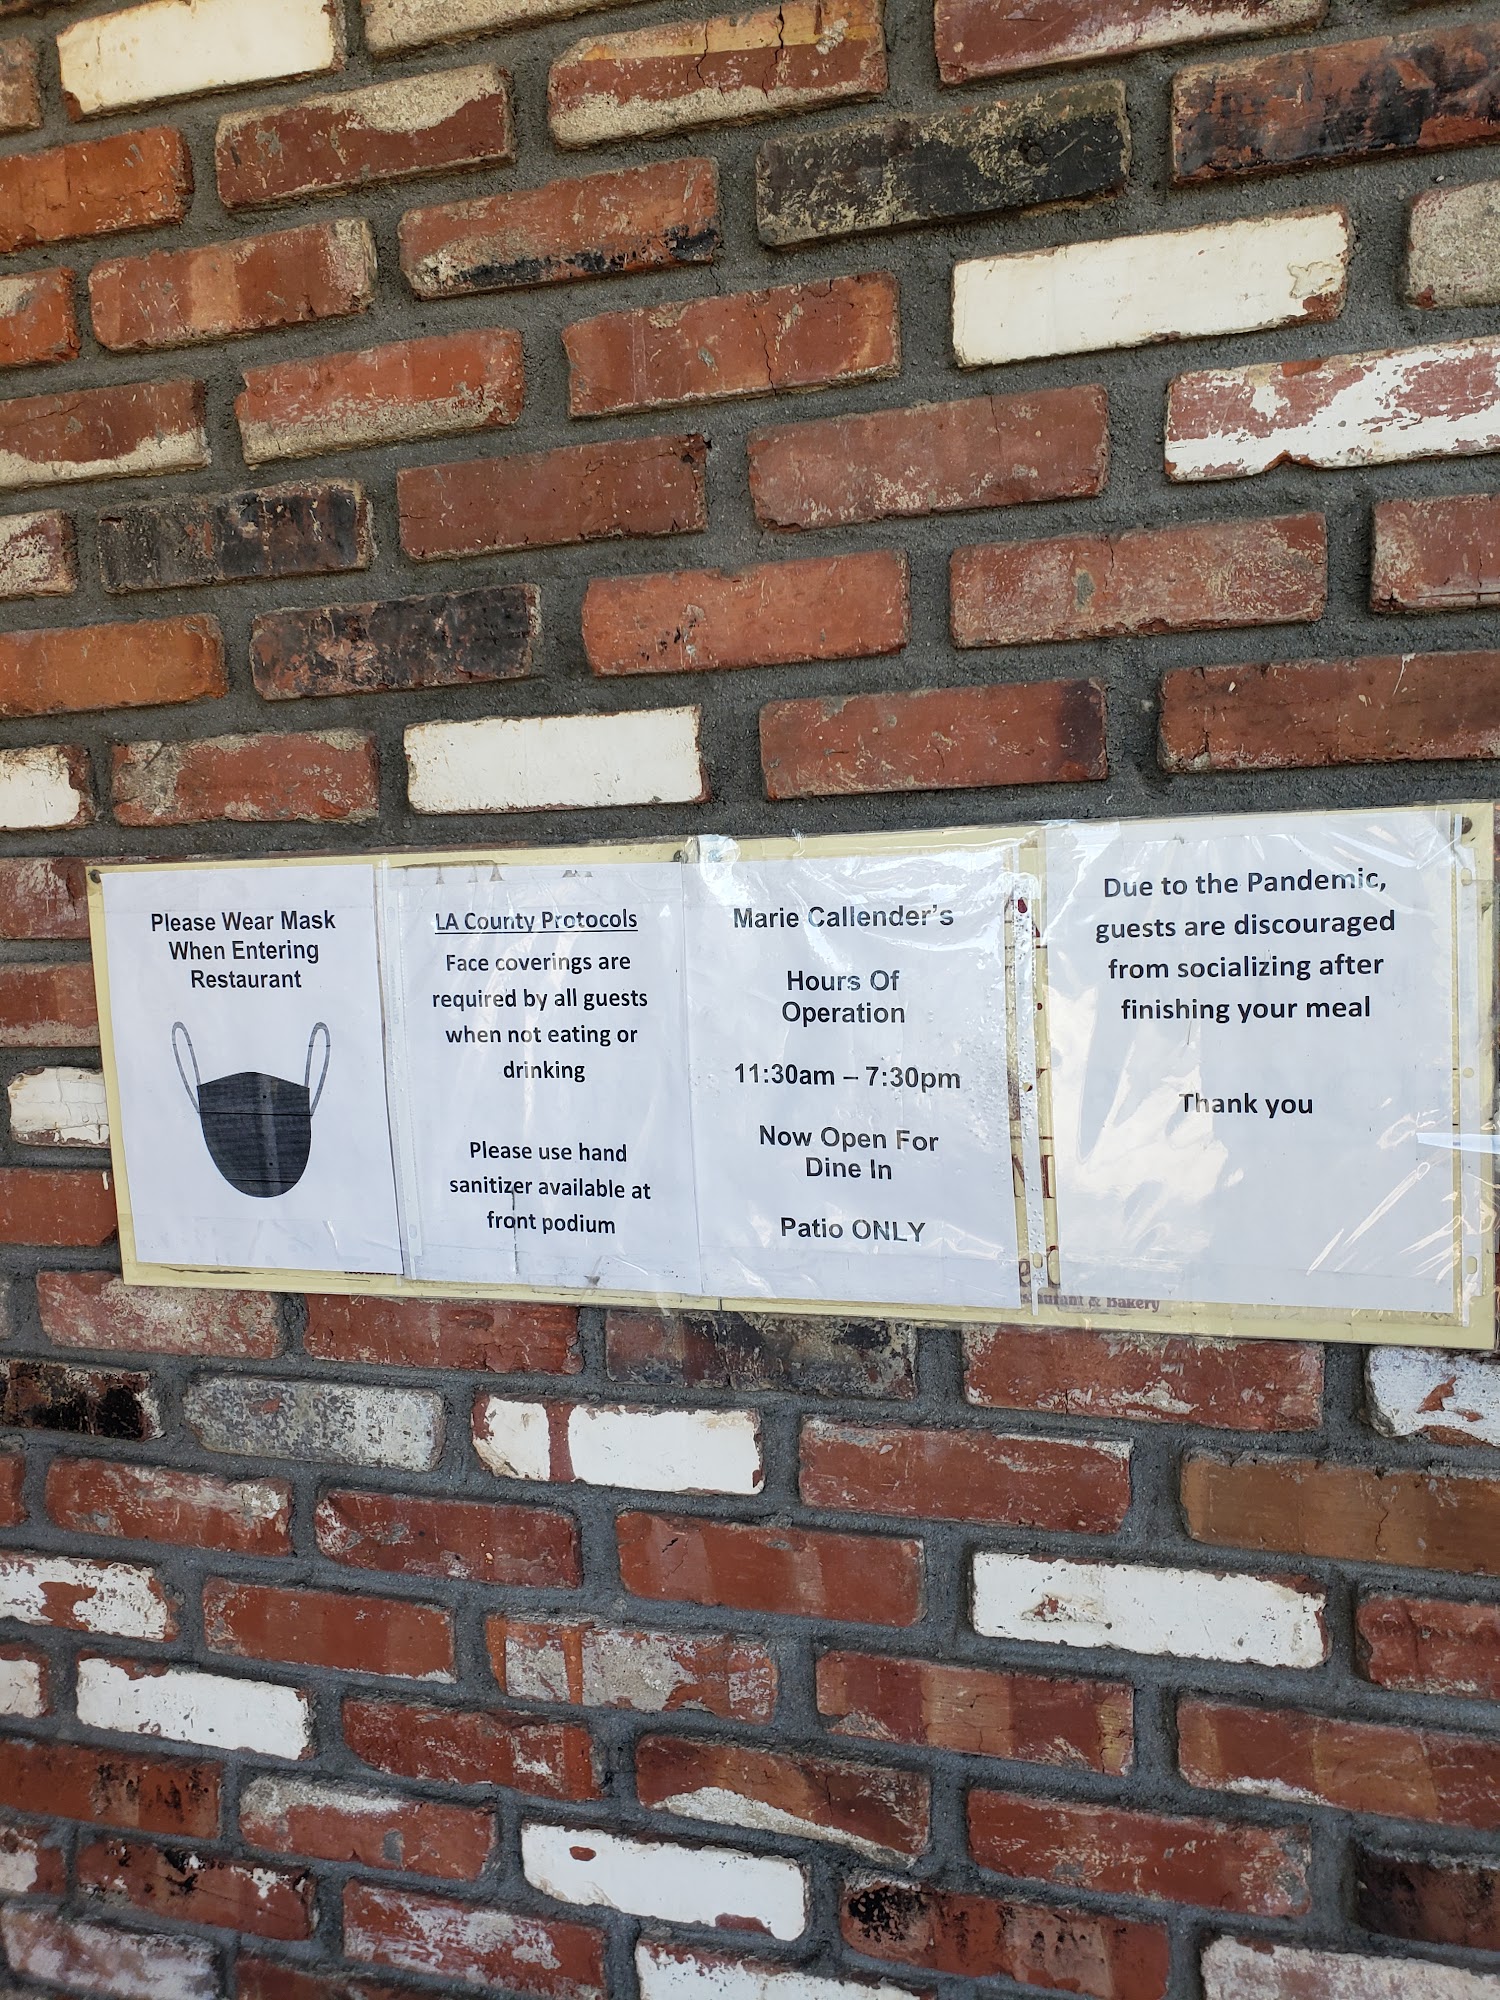 Please Wear Mask
When Entering
Restaurant
LA County Protocols
Face coverings are
required by all guests
when not eating or
drinking
Please use hand
sanitizer available at
front podium
Marie Callender's
Hours Of
Operation
11:30am – 7:30pm
Now Open For
Dine In
Patio ONLY
Due to the Pandemic,
guests are discouraged
from socializing after
finishing your meal
Thank you
& Bakery